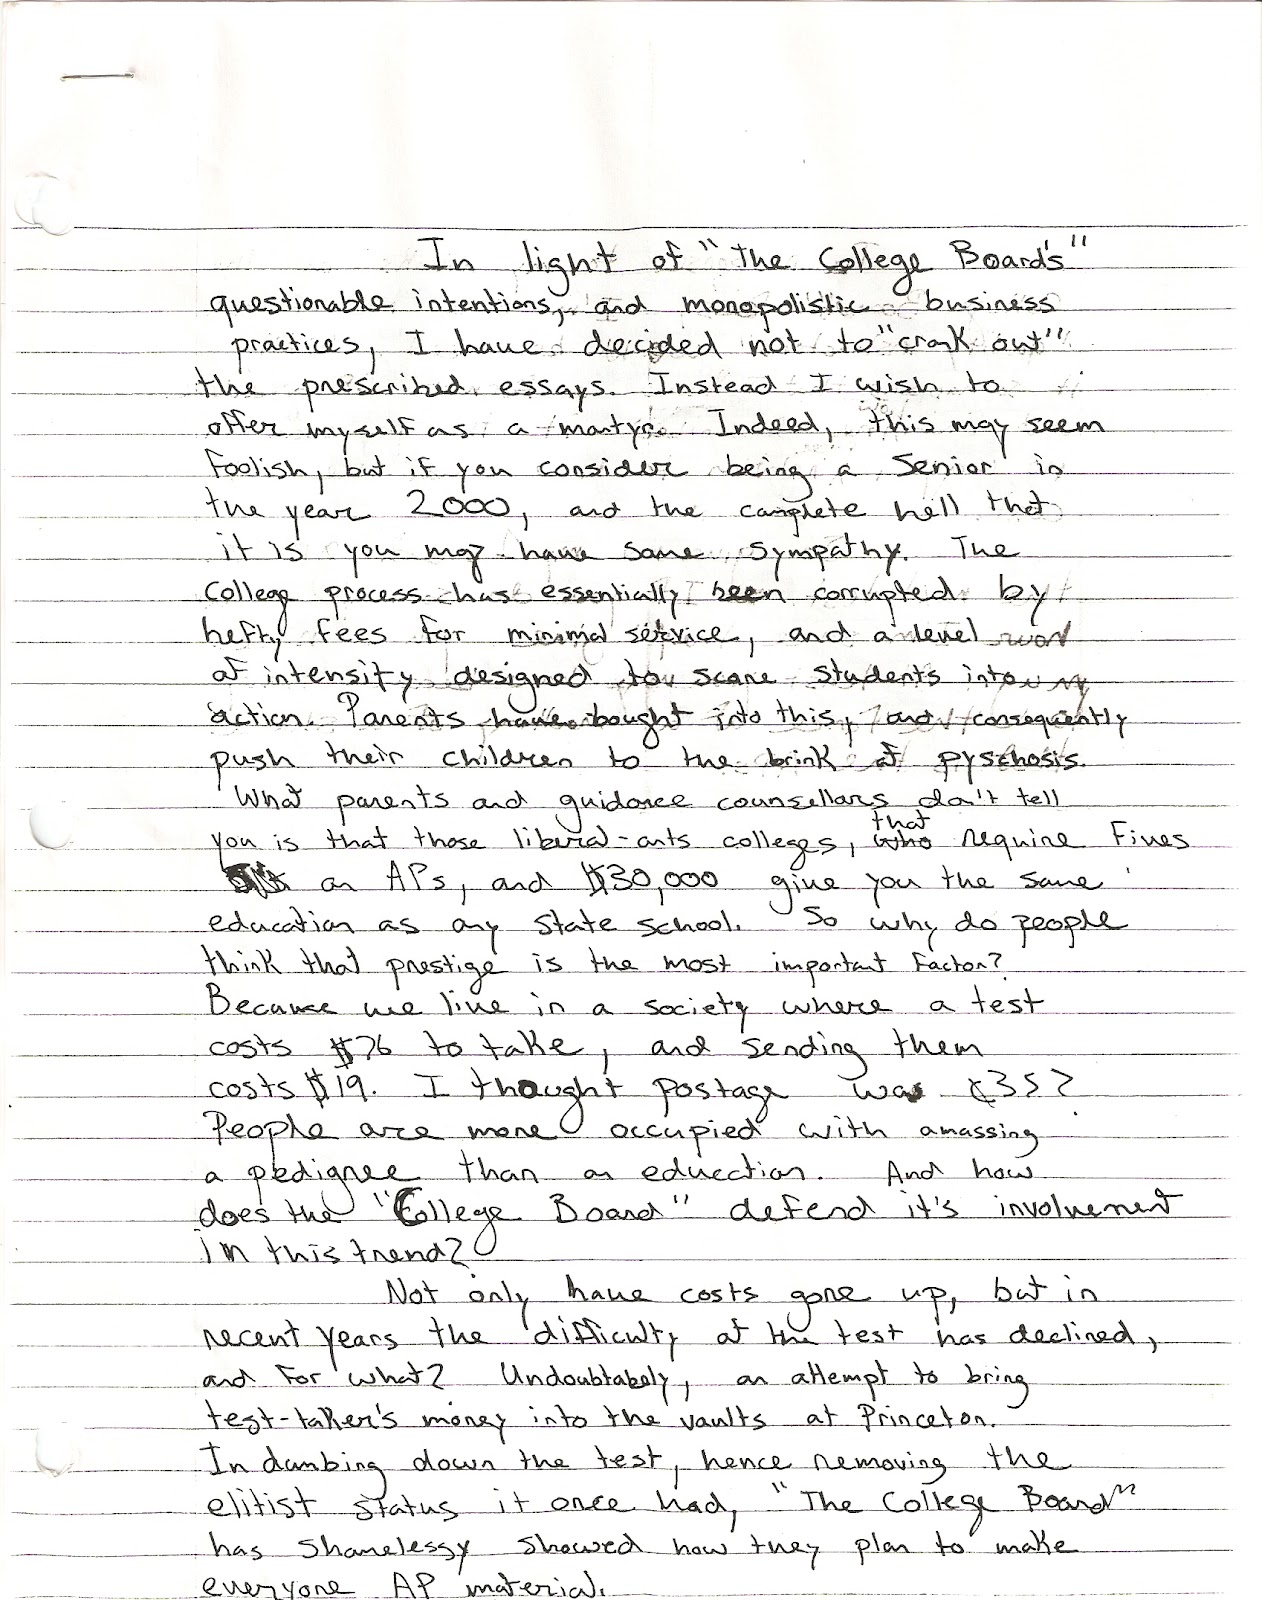 In light of "The College Board's"
questionable intentions, and monopolistic business
practices, I have decided not to "crank out"
the prescribed essays. Instead I wish to
offer myself as a martyr. Indeed, this may seem
foolish, but if you consider being a Senior in
the year 2000, and the complete hell that
it is you may have some sympathy. The
College process has essentially been corrupted by
hefty fees for minimal service, and a level
of intensity designed to scare students into
action. Parents have bought into this, and consequently
push their children to the brink of pyschosis.
What parents and guidance counsellors don't tell
you is that those liberal-arts colleges, that who require Fives
on APs, and $30,000 give you the same
education as any state school. So why do people
think that prestige is the most important factor?
Because we live in a society where a test
costs $76 to take, and sending them
costs $19. I thought postage was ¢35?
People are more occupied with amassing
a pedigree than an education. And how
does the "College Board" defend it's involvement
in this trend?
Not only have costs gone up, but in
recent years the difficulty of the test has declined,
and for what? Undoubtabely, an attempt to bring
test-taker's money into the vaults at Princeton.
In dumbing down the test, hence removing the
elitist status it once had, "The College Board"
has shamelessy showed how they plan to make
everyone AP material.